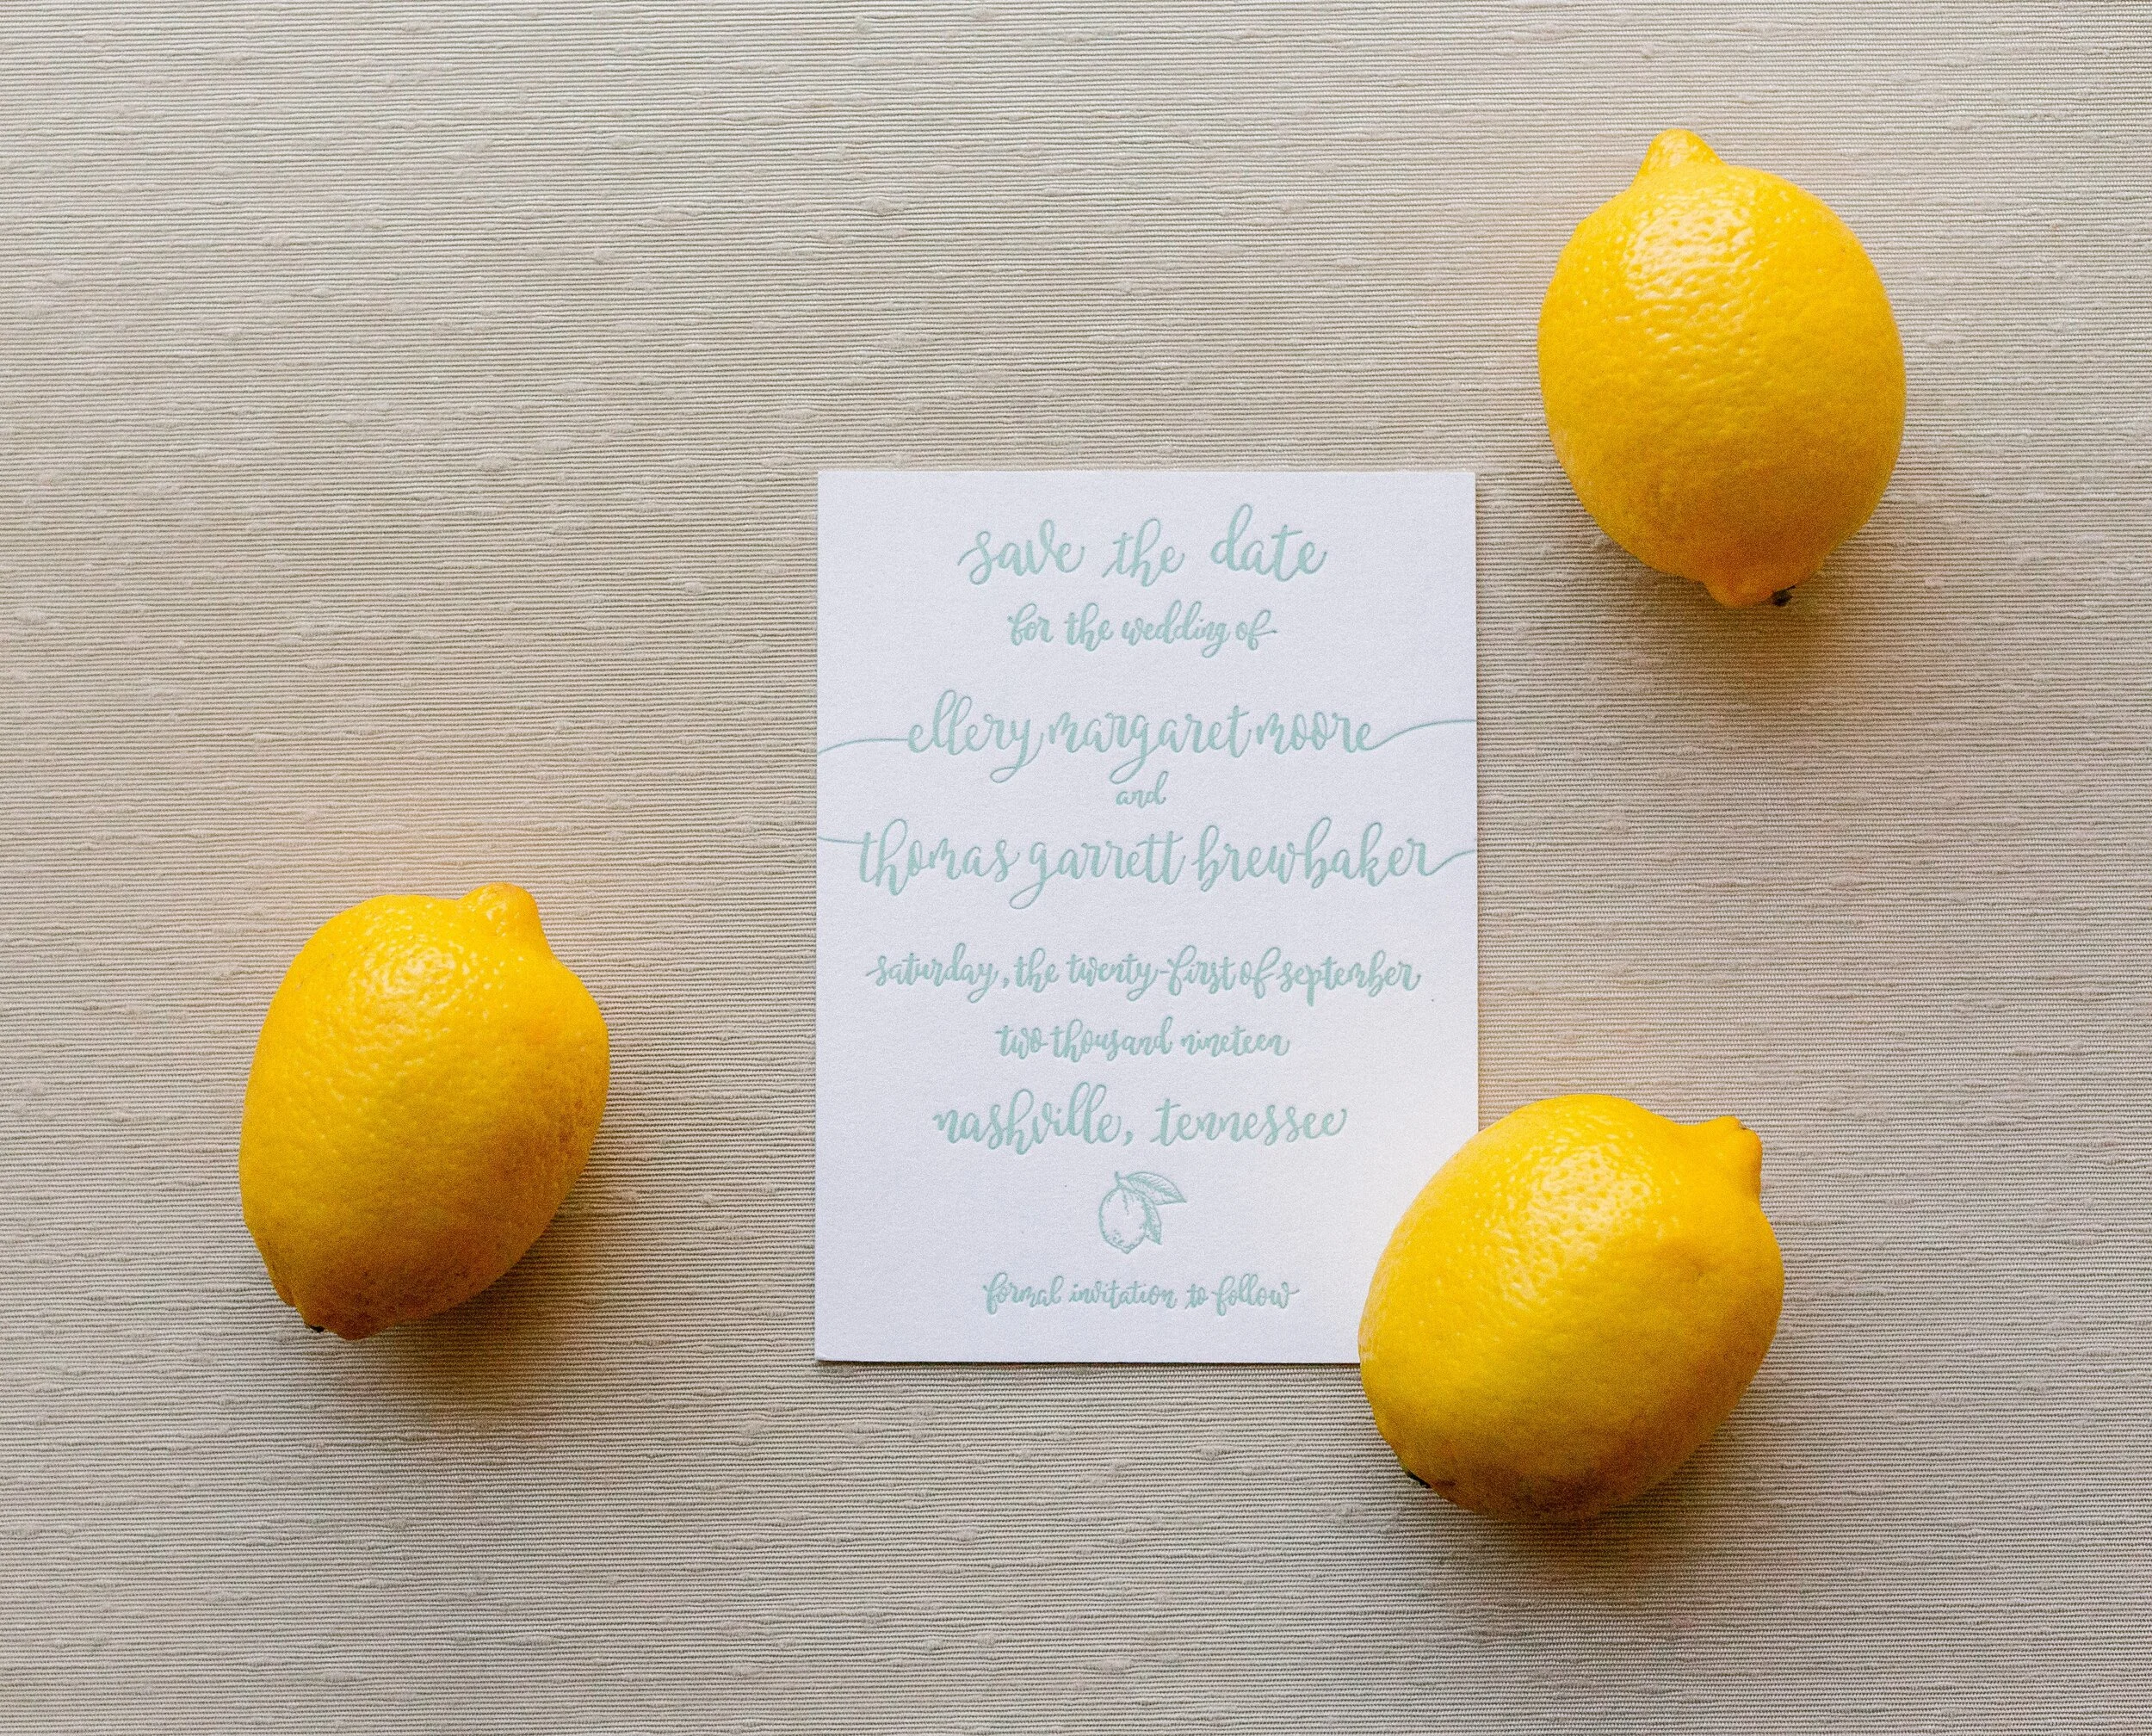 save the date
for the wedding of
ellery margaret moore
and
thomas garrett brewbaker
saturday, the twenty-first of september
two thousand nineteen
nashville, tennessee
formal invitation to follow